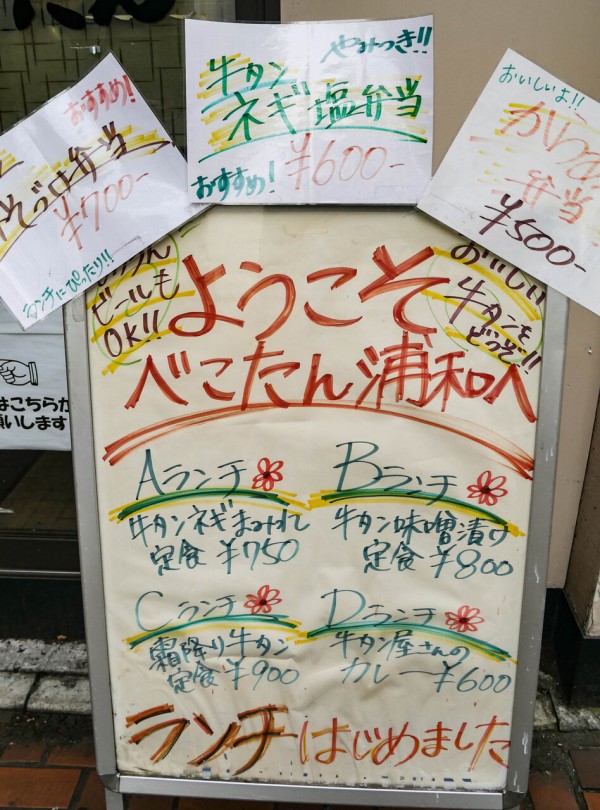 おすすめ!
みそづけ弁当
¥700-
ランチにぴったり!!
やみつき!!
牛タン
ネギ塩弁当
おすすめ!
¥600-
おいしいよ!!
弁当
¥500-
はこちらか
願いします
ビールも
OK!!
ようこそ
べこたん浦和へ
おいしい
牛タンを
どうぞ!!
Aランチ
牛タンネギまみれ
定食 ¥750
Bランチ
牛タン味噌漬け
定食 ¥800
Cランチ
霜降り牛タン
定食 ¥900
Dランチ
牛タン屋さんの
カレー ¥600
ランチはじめました